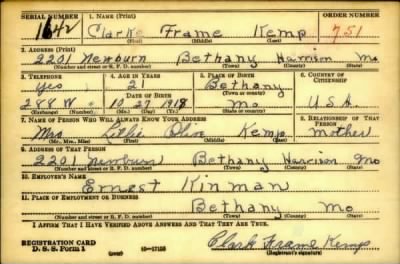 SERIAL NUMBER 1. NAME (Print) ORDER NUMBER
1642 Clarke Frame Kemp 751
(First) (Middle) (Last)
2. ADDRESS (Print)
2201 Newburn Bethany Harrison Mo
(Number and street or R. F. D. number) (Town) (County) (State)
3. TELEPHONE 4. AGE IN YEARS 5. PLACE OF BIRTH 6. COUNTRY OF CITIZENSHIP
Yes 21 Bethany
DATE OF BIRTH (Town or county)
288 W 10 27 1918 Mo U.S.A.
(Exchange) (Number) (Mo.) (Day) (Yr.) (State or country)
7. NAME OF PERSON WHO WILL ALWAYS KNOW YOUR ADDRESS 8. RELATIONSHIP OF THAT PERSON
Mrs Olive Kemp mother
(Mr., Mrs., Miss) (First) (Middle) (Last)
9. ADDRESS OF THAT PERSON
2201 Newburn Bethany Harrison Mo
(Number and street or R. F. D. number) (Town) (County) (State)
10. EMPLOYER'S NAME
Ernest Kinman
11. PLACE OF EMPLOYMENT OR BUSINESS
Bethany Mo
(Number and street or R. F. D. number) (Town) (County) (State)
I AFFIRM THAT I HAVE VERIFIED ABOVE ANSWERS AND THAT THEY ARE TRUE.
REGISTRATION CARD
D. S. S. Form 1 (over) 16—17105 Clark Frame Kemp
(Registrant's signature)